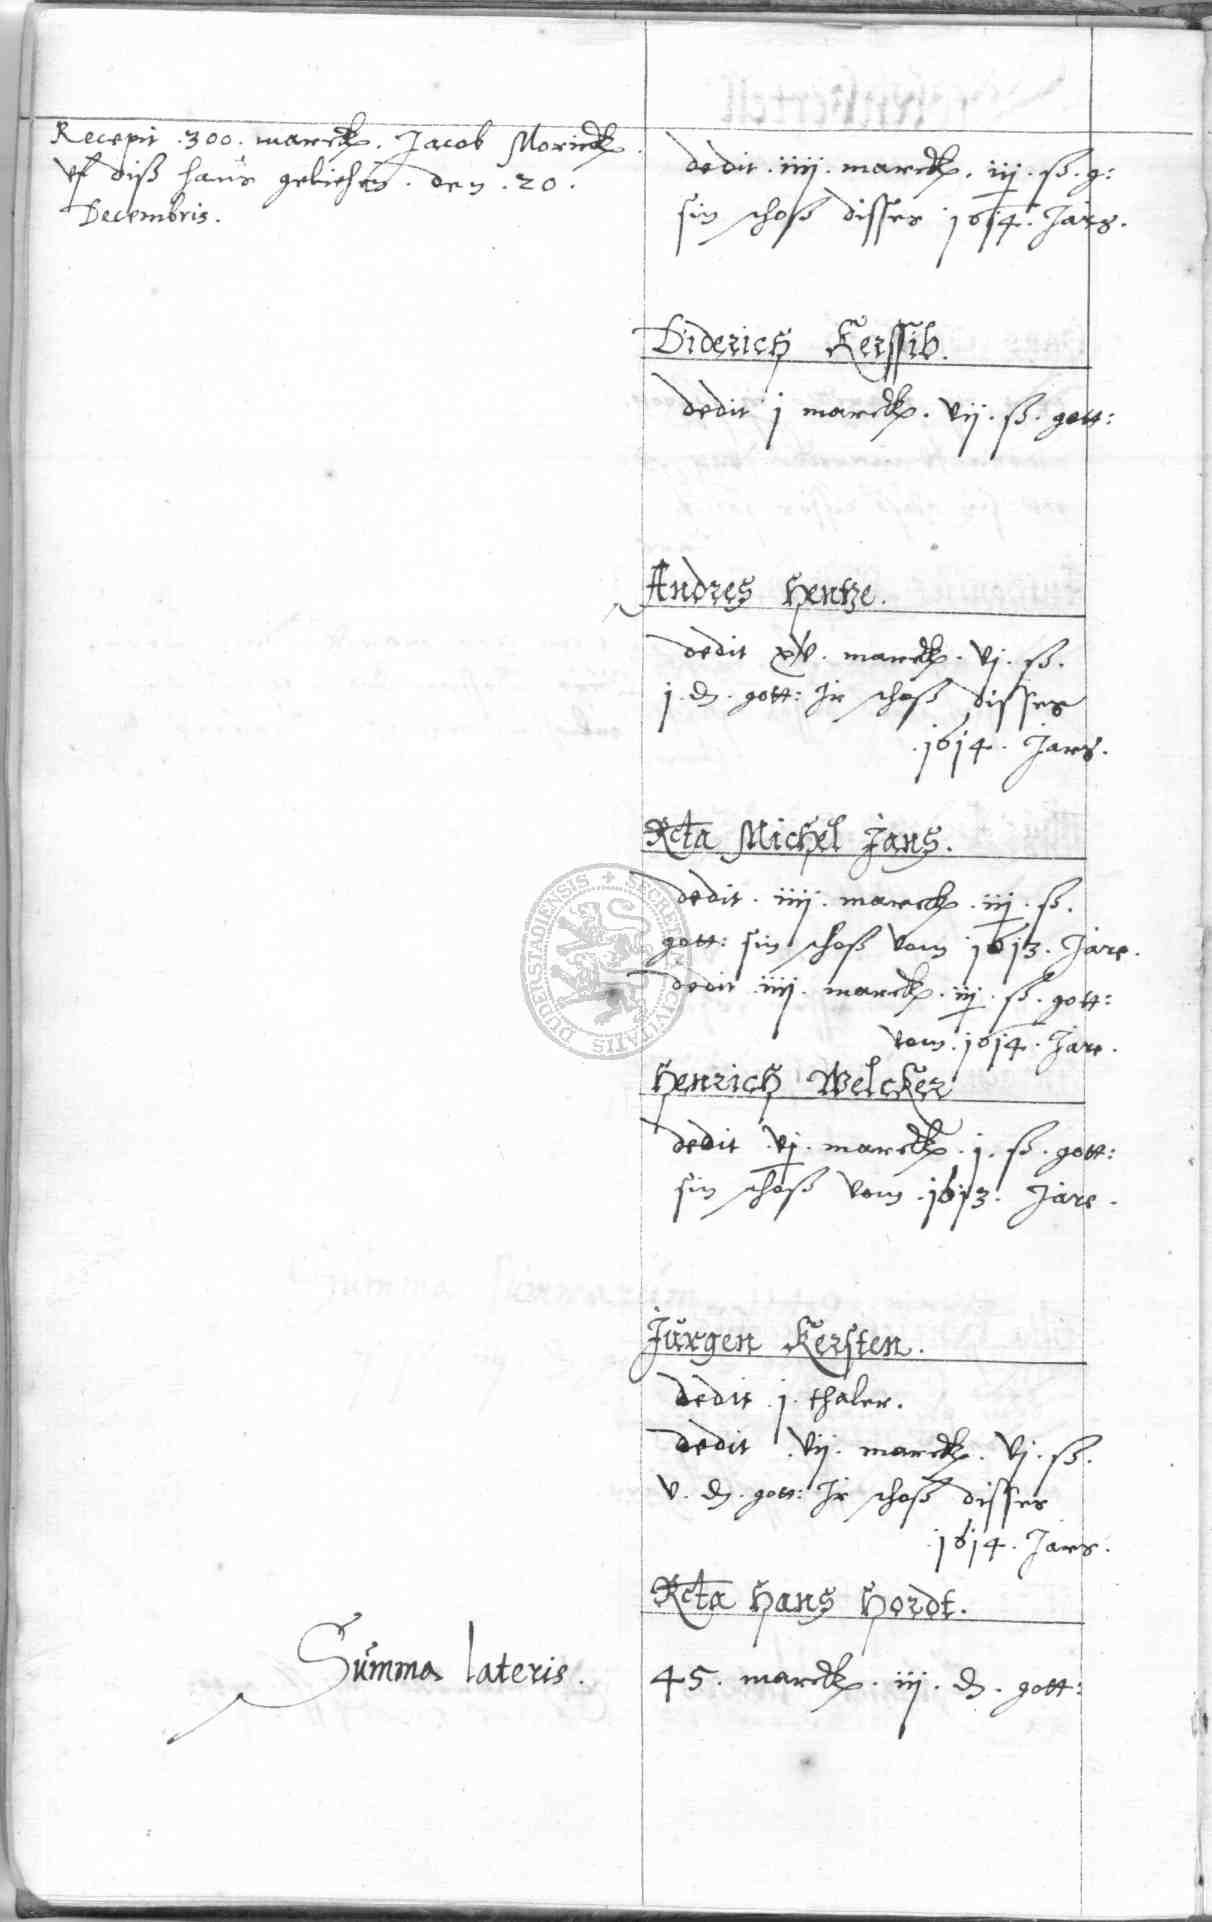 Recepit .300. marck. Jacob Morick
Uf diß haus geliehen. den .20.
Decembris.
dedit .iiij. marck. iij. ß. g:
sin schoß disses 1614. Jars.
Diderich Kerssib.
dedit j marck. vij. ß. gott:
Andres Hentze.
dedit xv. marck. vj. ß.
j. d. gott: Ir schoß disses
.1614. Jars.
Rcta Michel Jans.
dedit. iiij. marck. iij. ß.
gott: sin schoß vom 1613. Jare.
dedit iiij. marck. iij. ß. gott:
vom. 1614. Jare.
Henrich Welcker
dedit vj. marck. j. ß. gott:
sin schoß vom .1613. Jare.
Jürgen Kersten.
dedit j. thaler.
dedit .vij. marck. vj. ß.
v. d. gott: Ir schoß disses
.1614. Jars.
Rcta Hans Hordt.
Summa lateris. 45. marck. iij. d. gott:
SECRETUM CIVITATIS DUDERSTADIENSIS